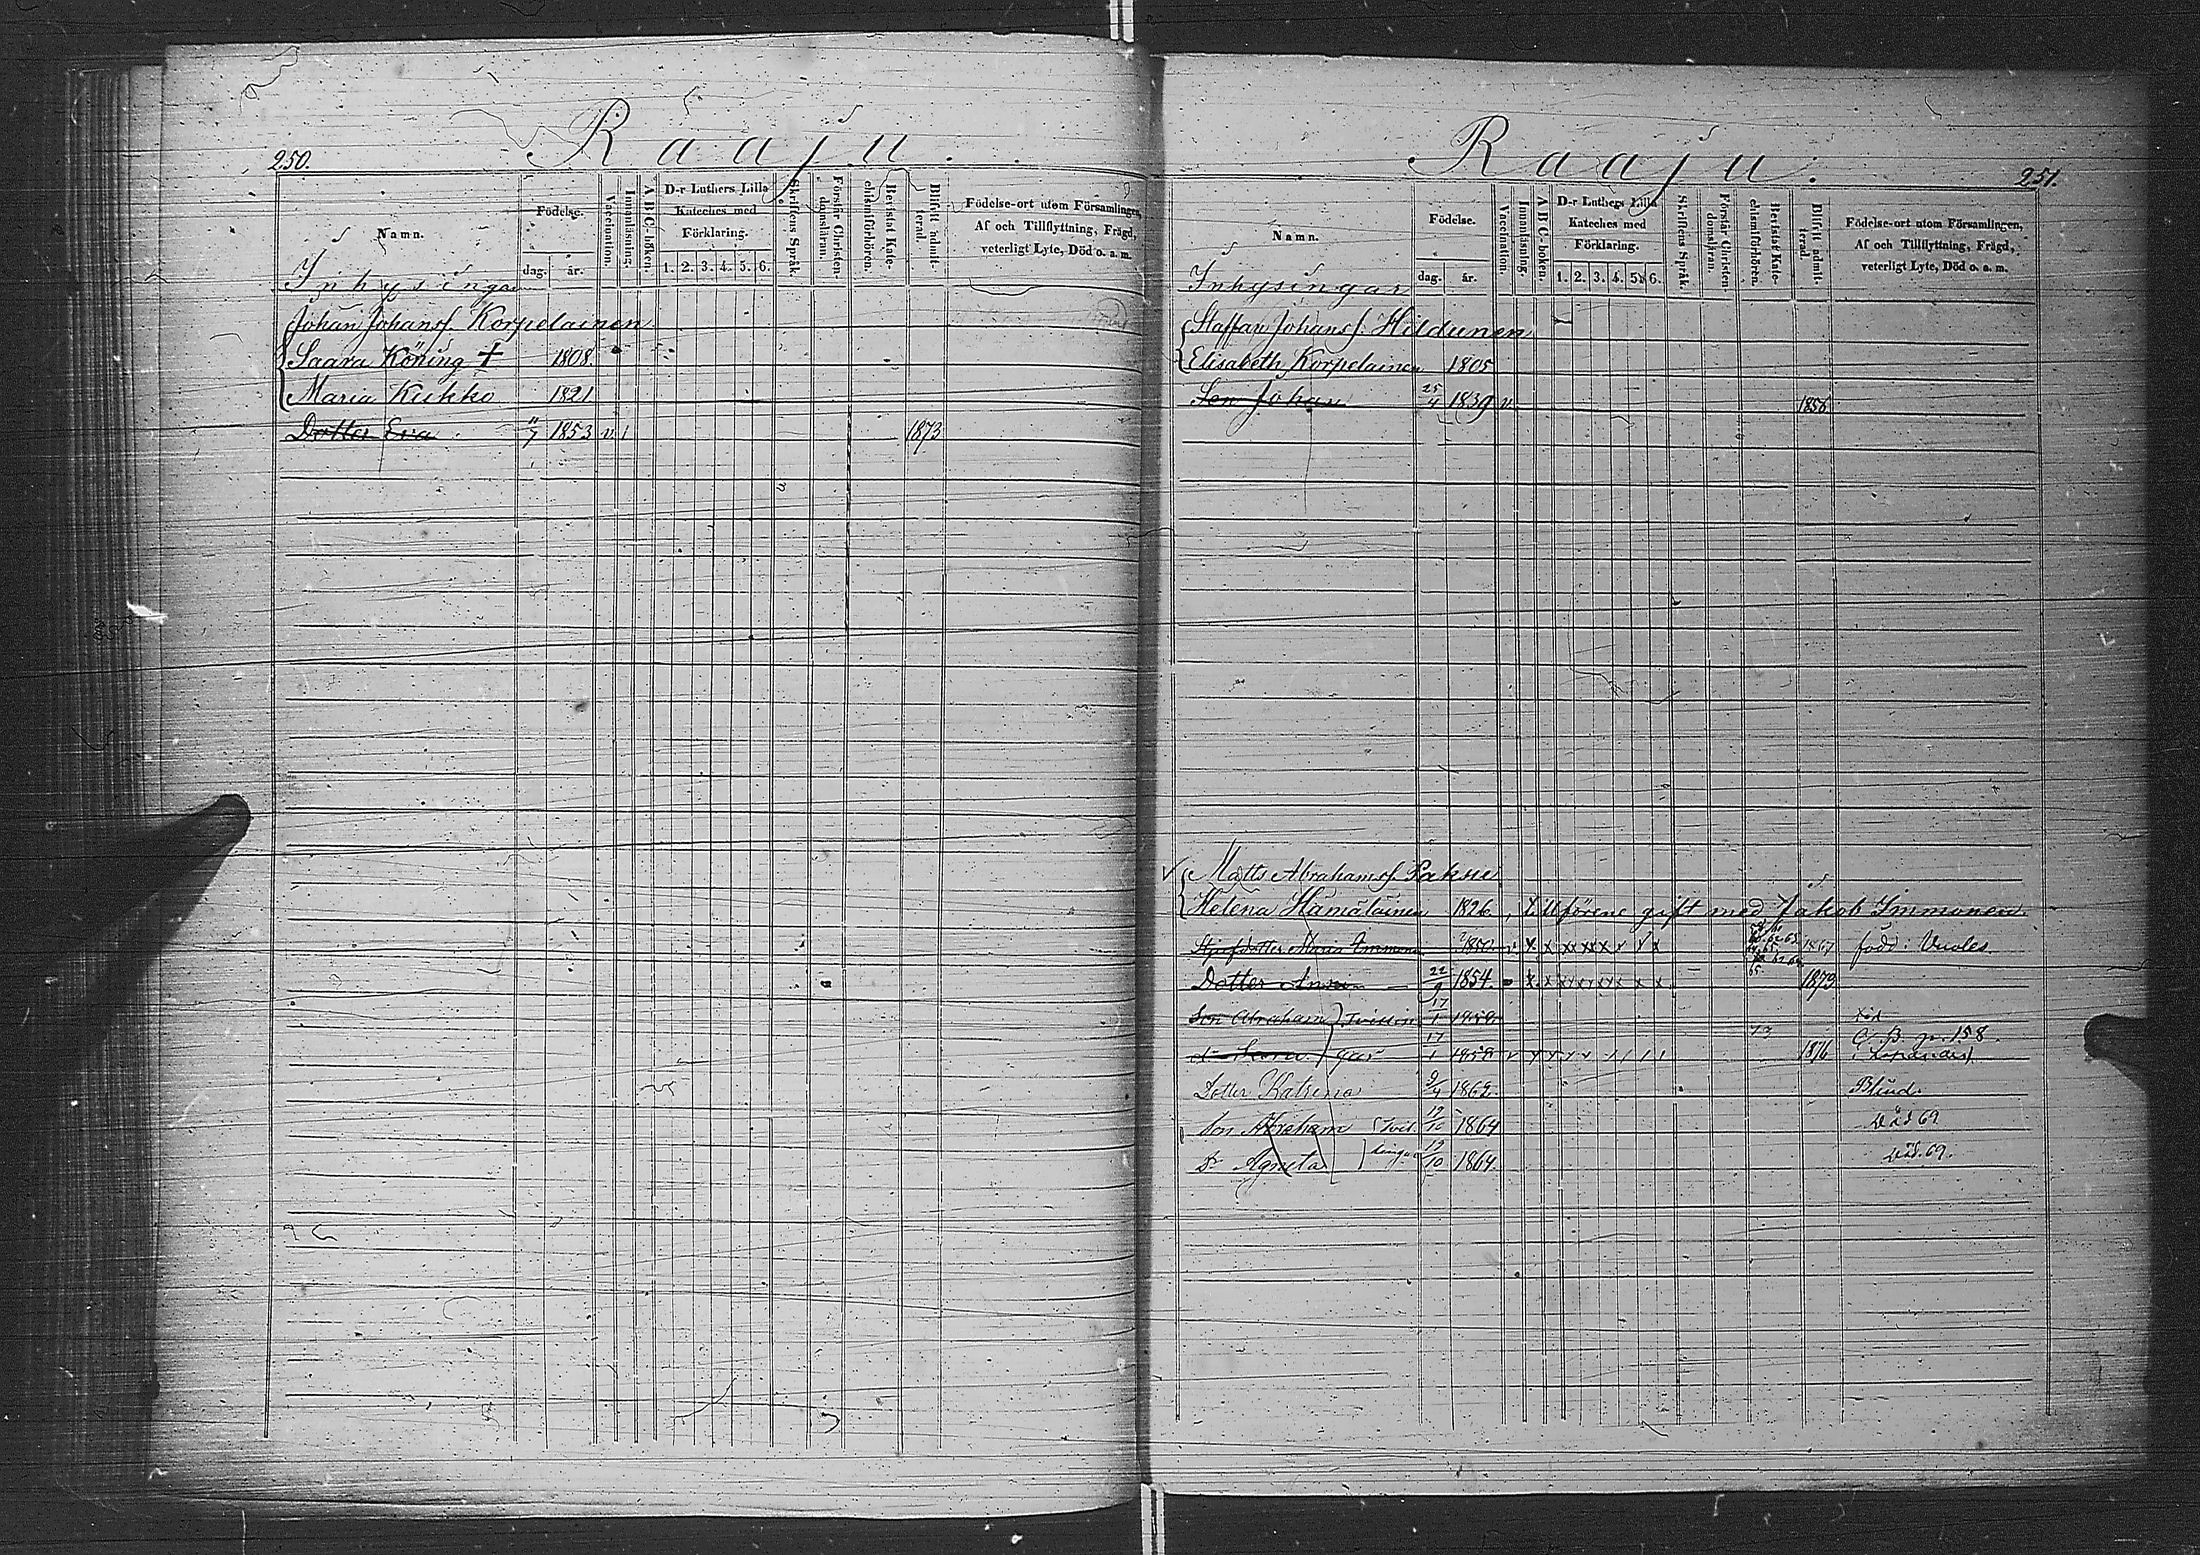 250.
Raaju.
Namn.
Födelse.
dag.
år.
Vaccination.
Innanläsning.
A B C-boken.
D-r Luthers Lilla
Kateches med
Förklaring.
1. 2. 3. 4. 5. 6.
Skriftens Språk.
Förstår Christen-
domsläran.
Bevistat Kate-
chismiförhören.
Blifvit admit-
terad.
Födelse-ort utom Församlingen,
Af och Tillflyttning, Frägd,
veterligt Lyte, Död o. a. m.
Inhysingar
Johan Johanss. Korpelainen
Saara Köning † 1808.
Maria Kukko 1821
Dotter Eva 11/7 1853 v 1 1873
Raaju.
251.
Namn.
Födelse.
dag.
år.
Vaccination.
Innanläsning.
A B C-boken.
D-r Luthers Lilla
Kateches med
Förklaring.
1. 2. 3. 4. 5. 6.
Skriftens Språk.
Förstår Christen-
domsläran.
Bevistat Kate-
chismiförhören.
Blifvit admit-
terad.
Födelse-ort utom Församlingen,
Af och Tillflyttning, Frägd,
veterligt Lyte, Död o. a. m.
Inhysingar
Staffan Johanss. Hildunen
Elisabeth Korpelainen 1805
Son Johan 25/4 1839 v 1858
Matts Abrahamss.
Helena Hämäläinen 1826, tillförene gift med Jakob Immonen.
Styfdotter Maria Immonen 1850 v x x xx xx x x x 1867 född i Vuoles.
Dotter Anna 22/9 1854. x x x x x x x x x 1873
Son Abraham } Tvillin 17/1 1859
d:o } gar 17/1 1859 v 73 1876 C. B. p. 158
Dotter Katrina 9/4 1862. Blind.
Son Abraham { Tvil 12/10 1864 Död 69
D:o Agneta } lingar 12/10 1864. Död. 69.